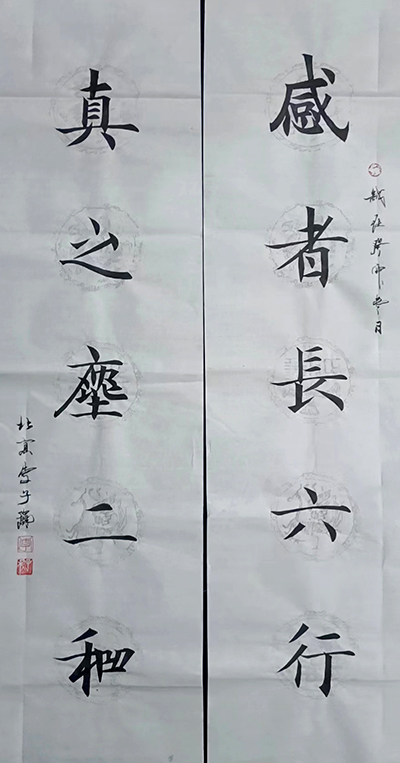 歲在癸卯冬日
感者長六行
真之二
北京李子